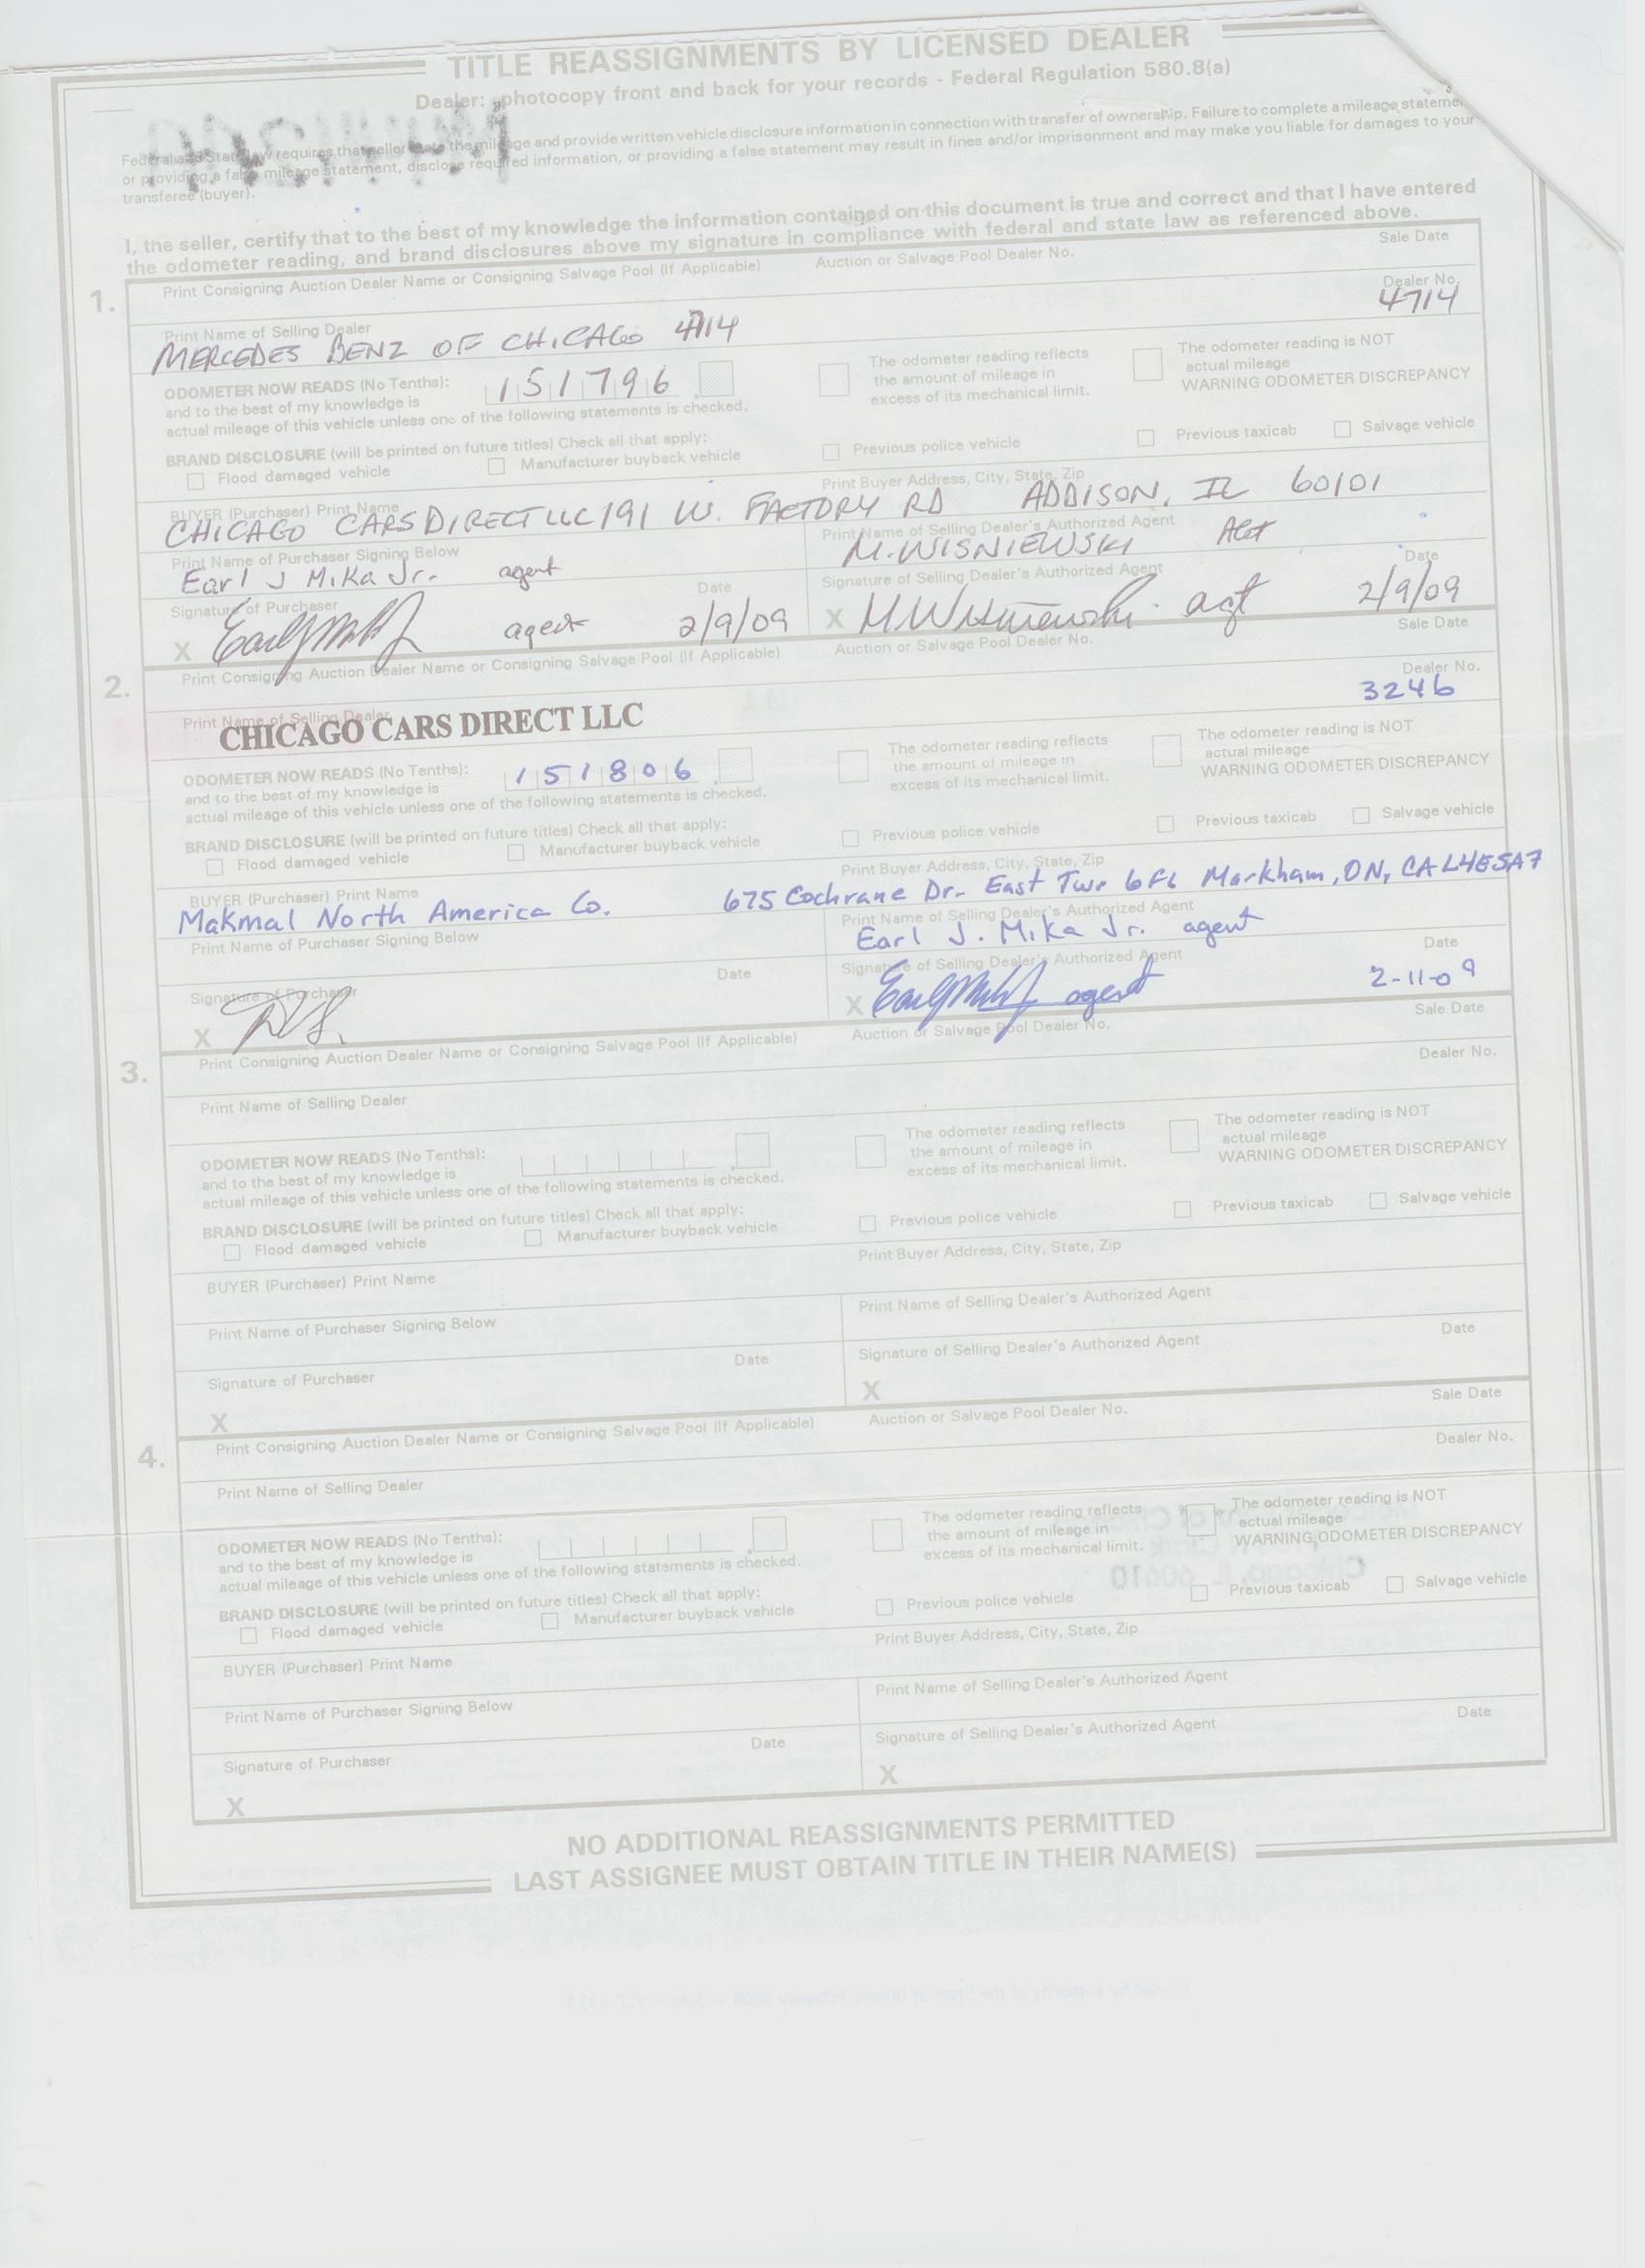 TITLE REASSIGNMENTS BY LICENSED DEALER
Dealer: photocopy front and back for your records - Federal Regulation 580.8(a)
Federal and State law requires that seller state the mileage and provide written vehicle disclosure information in connection with transfer of ownership. Failure to complete a mileage stateme
or providing a false mileage statement, disclose required information, or providing a false statement may result in fines and/or imprisonment and may make you liable for damages to your
transferee (buyer).
I, the seller, certify that to the best of my knowledge the information contained on this document is true and correct and that I have entered
the odometer reading, and brand disclosures above my signature in compliance with federal and state law as referenced above.
1.
Print Consigning Auction Dealer Name or Consigning Salvage Pool (If Applicable) Auction or Salvage Pool Dealer No. Sale Date
Print Name of Selling Dealer Dealer No.
MERCEDES BENZ OF CHICAGO 4714 4714
ODOMETER NOW READS (No Tenths): 151796
and to the best of my knowledge is
actual mileage of this vehicle unless one of the following statements is checked.
The odometer reading reflects
the amount of mileage in
excess of its mechanical limit.
The odometer reading is NOT
actual mileage
WARNING ODOMETER DISCREPANCY
BRAND DISCLOSURE (will be printed on future titles) Check all that apply:
Flood damaged vehicle Manufacturer buyback vehicle Previous police vehicle Previous taxicab Salvage vehicle
BUYER (Purchaser) Print Name Print Buyer Address, City, State, Zip
CHICAGO CARS DIRECT LLC 191 W. FACTORY RD ADDISON, IL 60101
Print Name of Purchaser Signing Below Print Name of Selling Dealer's Authorized Agent
Earl J Mika Jr. agent M. WISNIEWSKI
Signature of Purchaser Date Signature of Selling Dealer's Authorized Agent Date
X agent 2/9/09 X M Wisniewski agt 2/9/09
2.
Print Consigning Auction Dealer Name or Consigning Salvage Pool (If Applicable) Auction or Salvage Pool Dealer No. Sale Date
Print Name of Selling Dealer Dealer No.
CHICAGO CARS DIRECT LLC 3246
ODOMETER NOW READS (No Tenths): 151806
and to the best of my knowledge is
actual mileage of this vehicle unless one of the following statements is checked.
The odometer reading reflects
the amount of mileage in
excess of its mechanical limit.
The odometer reading is NOT
actual mileage
WARNING ODOMETER DISCREPANCY
BRAND DISCLOSURE (will be printed on future titles) Check all that apply:
Flood damaged vehicle Manufacturer buyback vehicle Previous police vehicle Previous taxicab Salvage vehicle
BUYER (Purchaser) Print Name Print Buyer Address, City, State, Zip
Makmal North America Co. 675 Cochrane Dr. East Twr 6FL Markham, ON, CA L4E5A7
Print Name of Purchaser Signing Below Print Name of Selling Dealer's Authorized Agent
Earl J. Mika Jr. agent
Signature of Purchaser Date Signature of Selling Dealer's Authorized Agent Date
X X agent 2-11-09
3.
Print Consigning Auction Dealer Name or Consigning Salvage Pool (If Applicable) Auction or Salvage Pool Dealer No. Sale Date
Print Name of Selling Dealer Dealer No.
ODOMETER NOW READS (No Tenths):
and to the best of my knowledge is
actual mileage of this vehicle unless one of the following statements is checked.
The odometer reading reflects
the amount of mileage in
excess of its mechanical limit.
The odometer reading is NOT
actual mileage
WARNING ODOMETER DISCREPANCY
BRAND DISCLOSURE (will be printed on future titles) Check all that apply:
Flood damaged vehicle Manufacturer buyback vehicle Previous police vehicle Previous taxicab Salvage vehicle
BUYER (Purchaser) Print Name Print Buyer Address, City, State, Zip
Print Name of Purchaser Signing Below Print Name of Selling Dealer's Authorized Agent
Signature of Purchaser Date Signature of Selling Dealer's Authorized Agent Date
X X
4.
Print Consigning Auction Dealer Name or Consigning Salvage Pool (If Applicable) Auction or Salvage Pool Dealer No. Sale Date
Print Name of Selling Dealer Dealer No.
ODOMETER NOW READS (No Tenths):
and to the best of my knowledge is
actual mileage of this vehicle unless one of the following statements is checked.
The odometer reading reflects
the amount of mileage in
excess of its mechanical limit.
The odometer reading is NOT
actual mileage
WARNING ODOMETER DISCREPANCY
BRAND DISCLOSURE (will be printed on future titles) Check all that apply:
Flood damaged vehicle Manufacturer buyback vehicle Previous police vehicle Previous taxicab Salvage vehicle
BUYER (Purchaser) Print Name Print Buyer Address, City, State, Zip
Print Name of Purchaser Signing Below Print Name of Selling Dealer's Authorized Agent
Signature of Purchaser Date Signature of Selling Dealer's Authorized Agent Date
X X
NO ADDITIONAL REASSIGNMENTS PERMITTED
LAST ASSIGNEE MUST OBTAIN TITLE IN THEIR NAME(S)